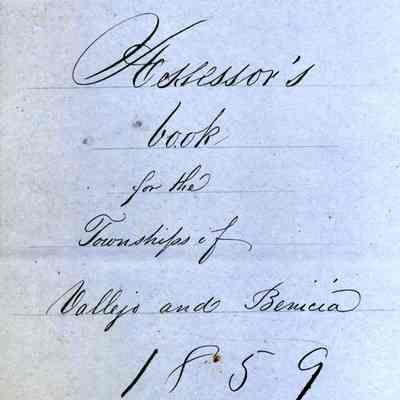 Assessor's
book
for the
Townships of
Vallejo and Benicia
1859